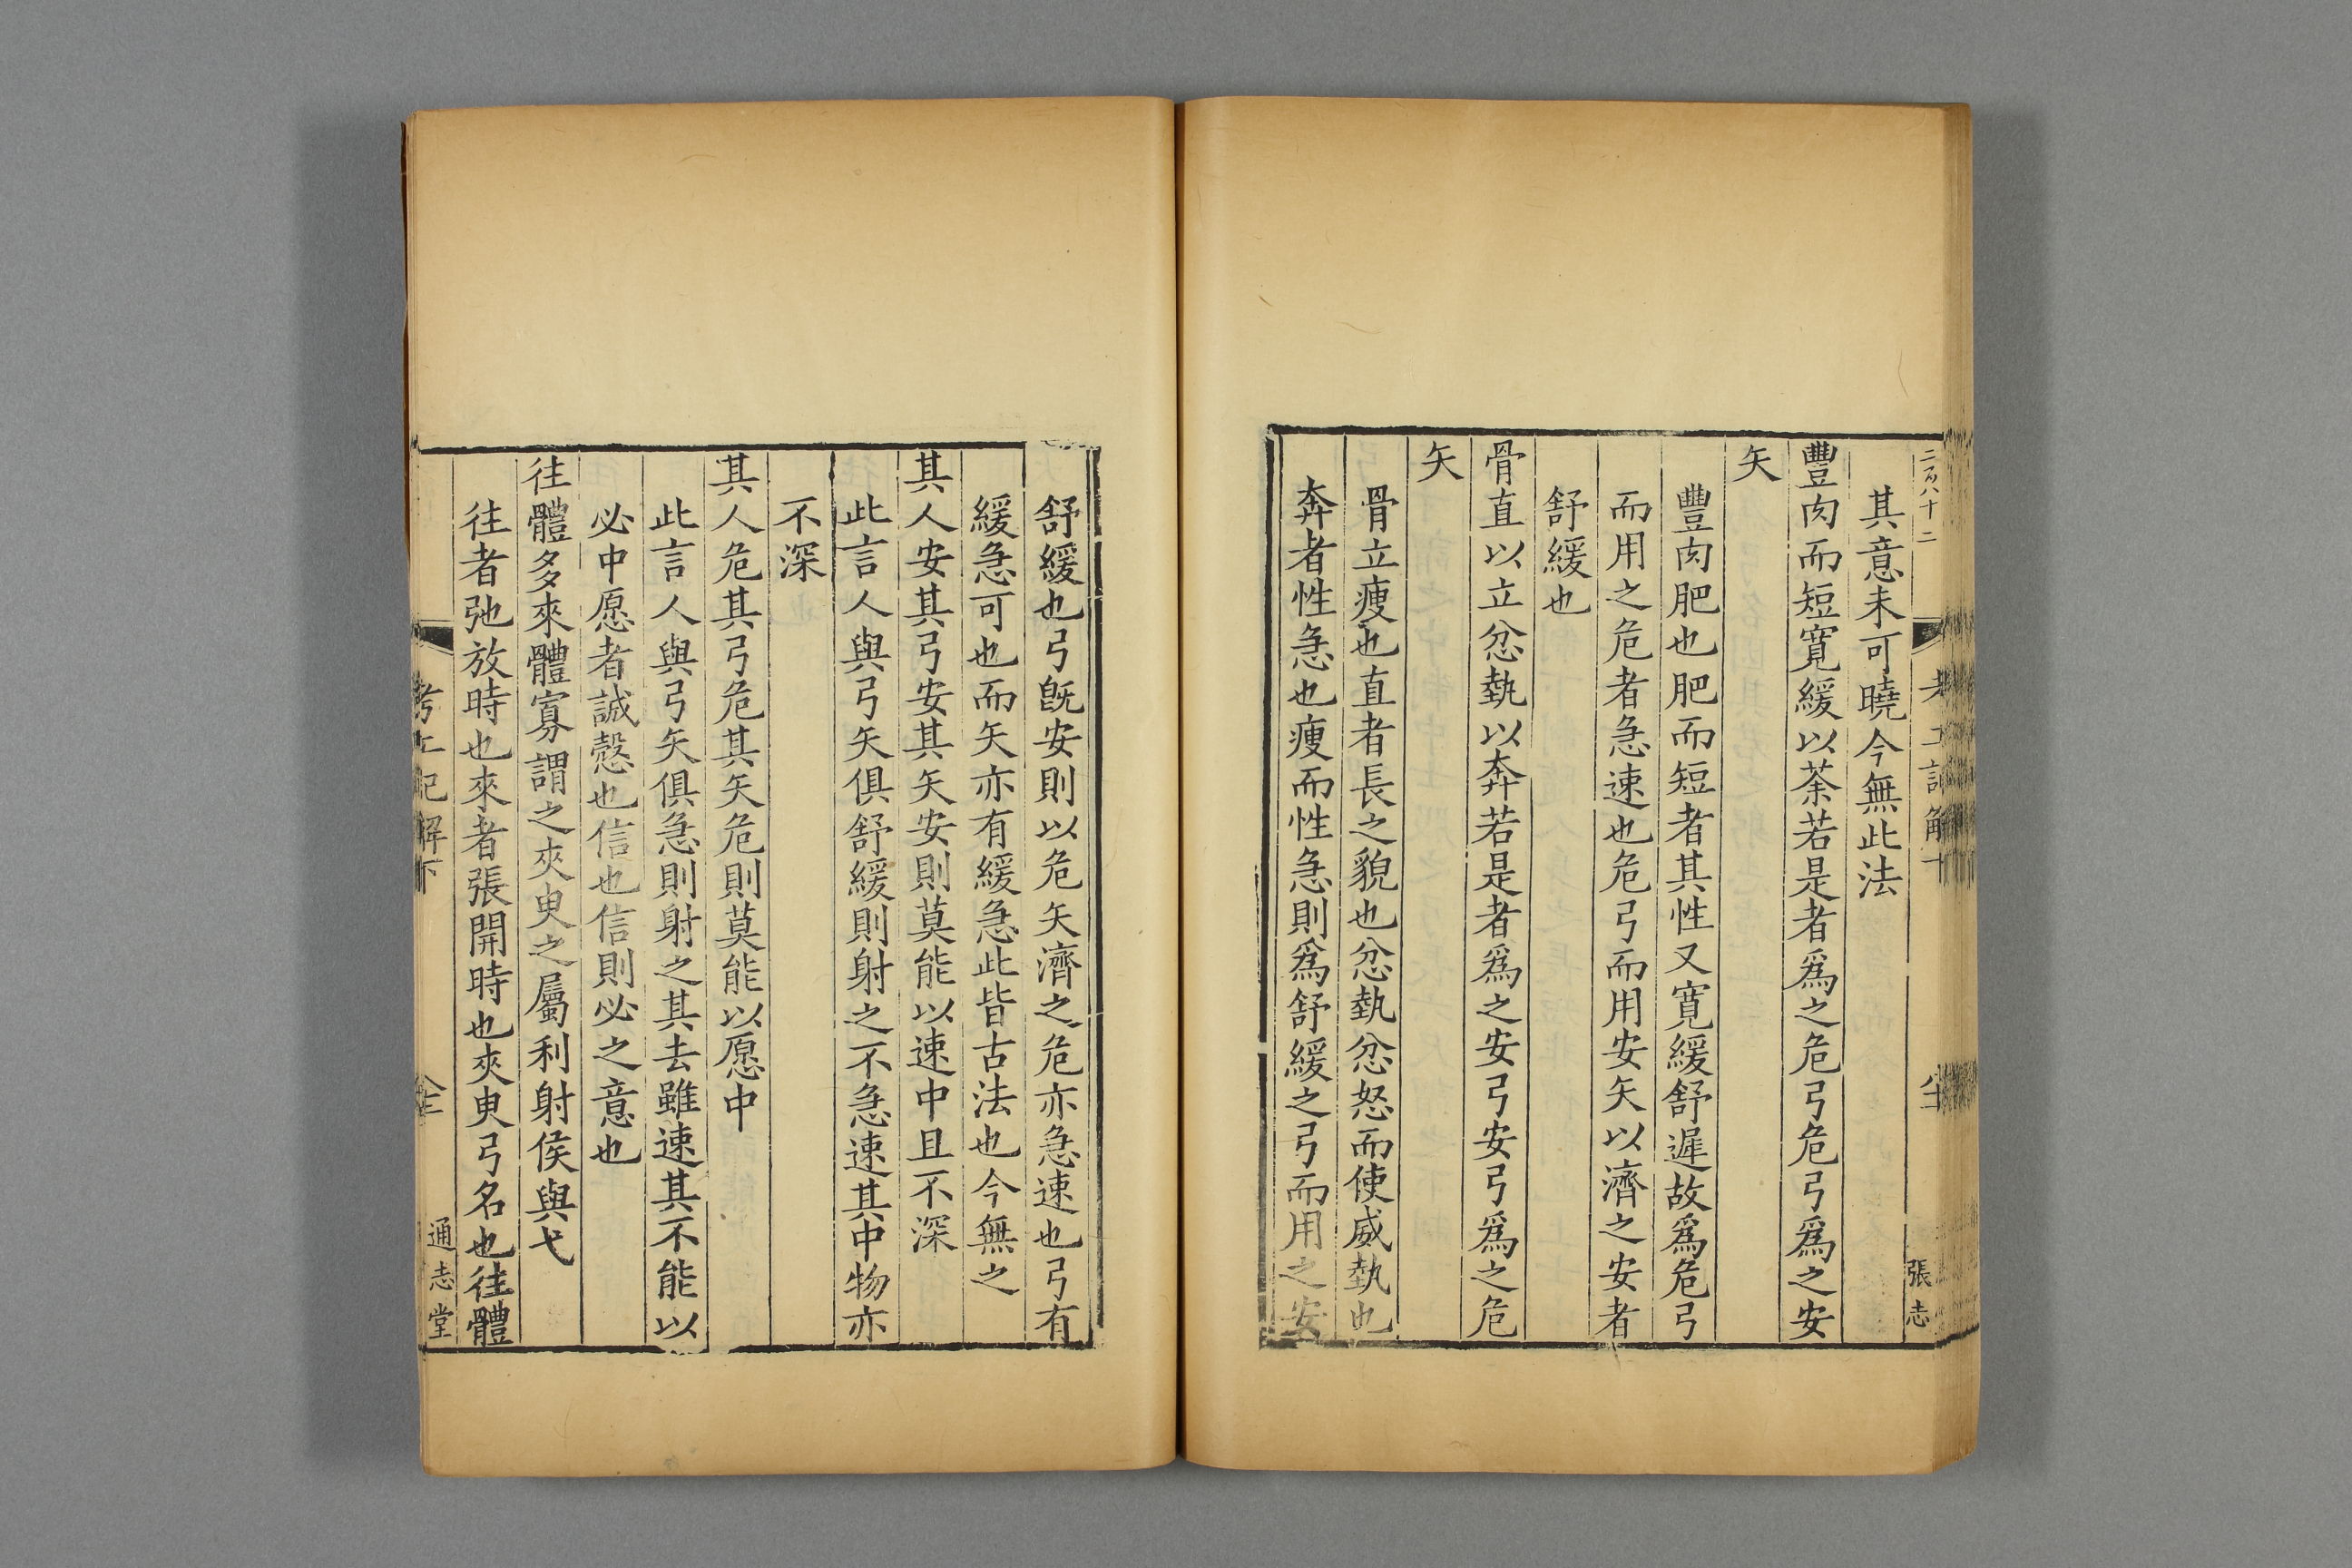 二百八十二
張志
其意未可曉今無此法
豐肉而短寬緩以荼若是者爲之危弓危弓爲之安
矢
豐肉肥也肥而短者其性又寬緩舒遲故爲危弓
而用之危者急速也危弓而用安矢以濟之安者
舒緩也
骨直以立忿埶以奔若是者爲之安弓安弓爲之危
矢
骨立瘦也直者長之貌也忿埶忿怒而使威埶也
奔者性急也瘦而性急則爲舒緩之弓而用之安
舒緩也弓旣安則以危矢濟之危亦急速也弓有
緩急可也而矢亦有緩急此皆古法也今無之
其人安其弓安其矢安則莫能以速中且不深
此言人與弓矢俱舒緩則射之不急速其中物亦
不深
其人危其弓危其矢危則莫能以愿中
此言人與弓矢俱急則射之其去雖速其不能以
必中愿者誠慤也信也信則必之意也
往體多來體寡謂之夾臾之屬利射侯與弋
往者弛放時也來者張開時也夾臾弓名也往體
考工記解下
通志堂